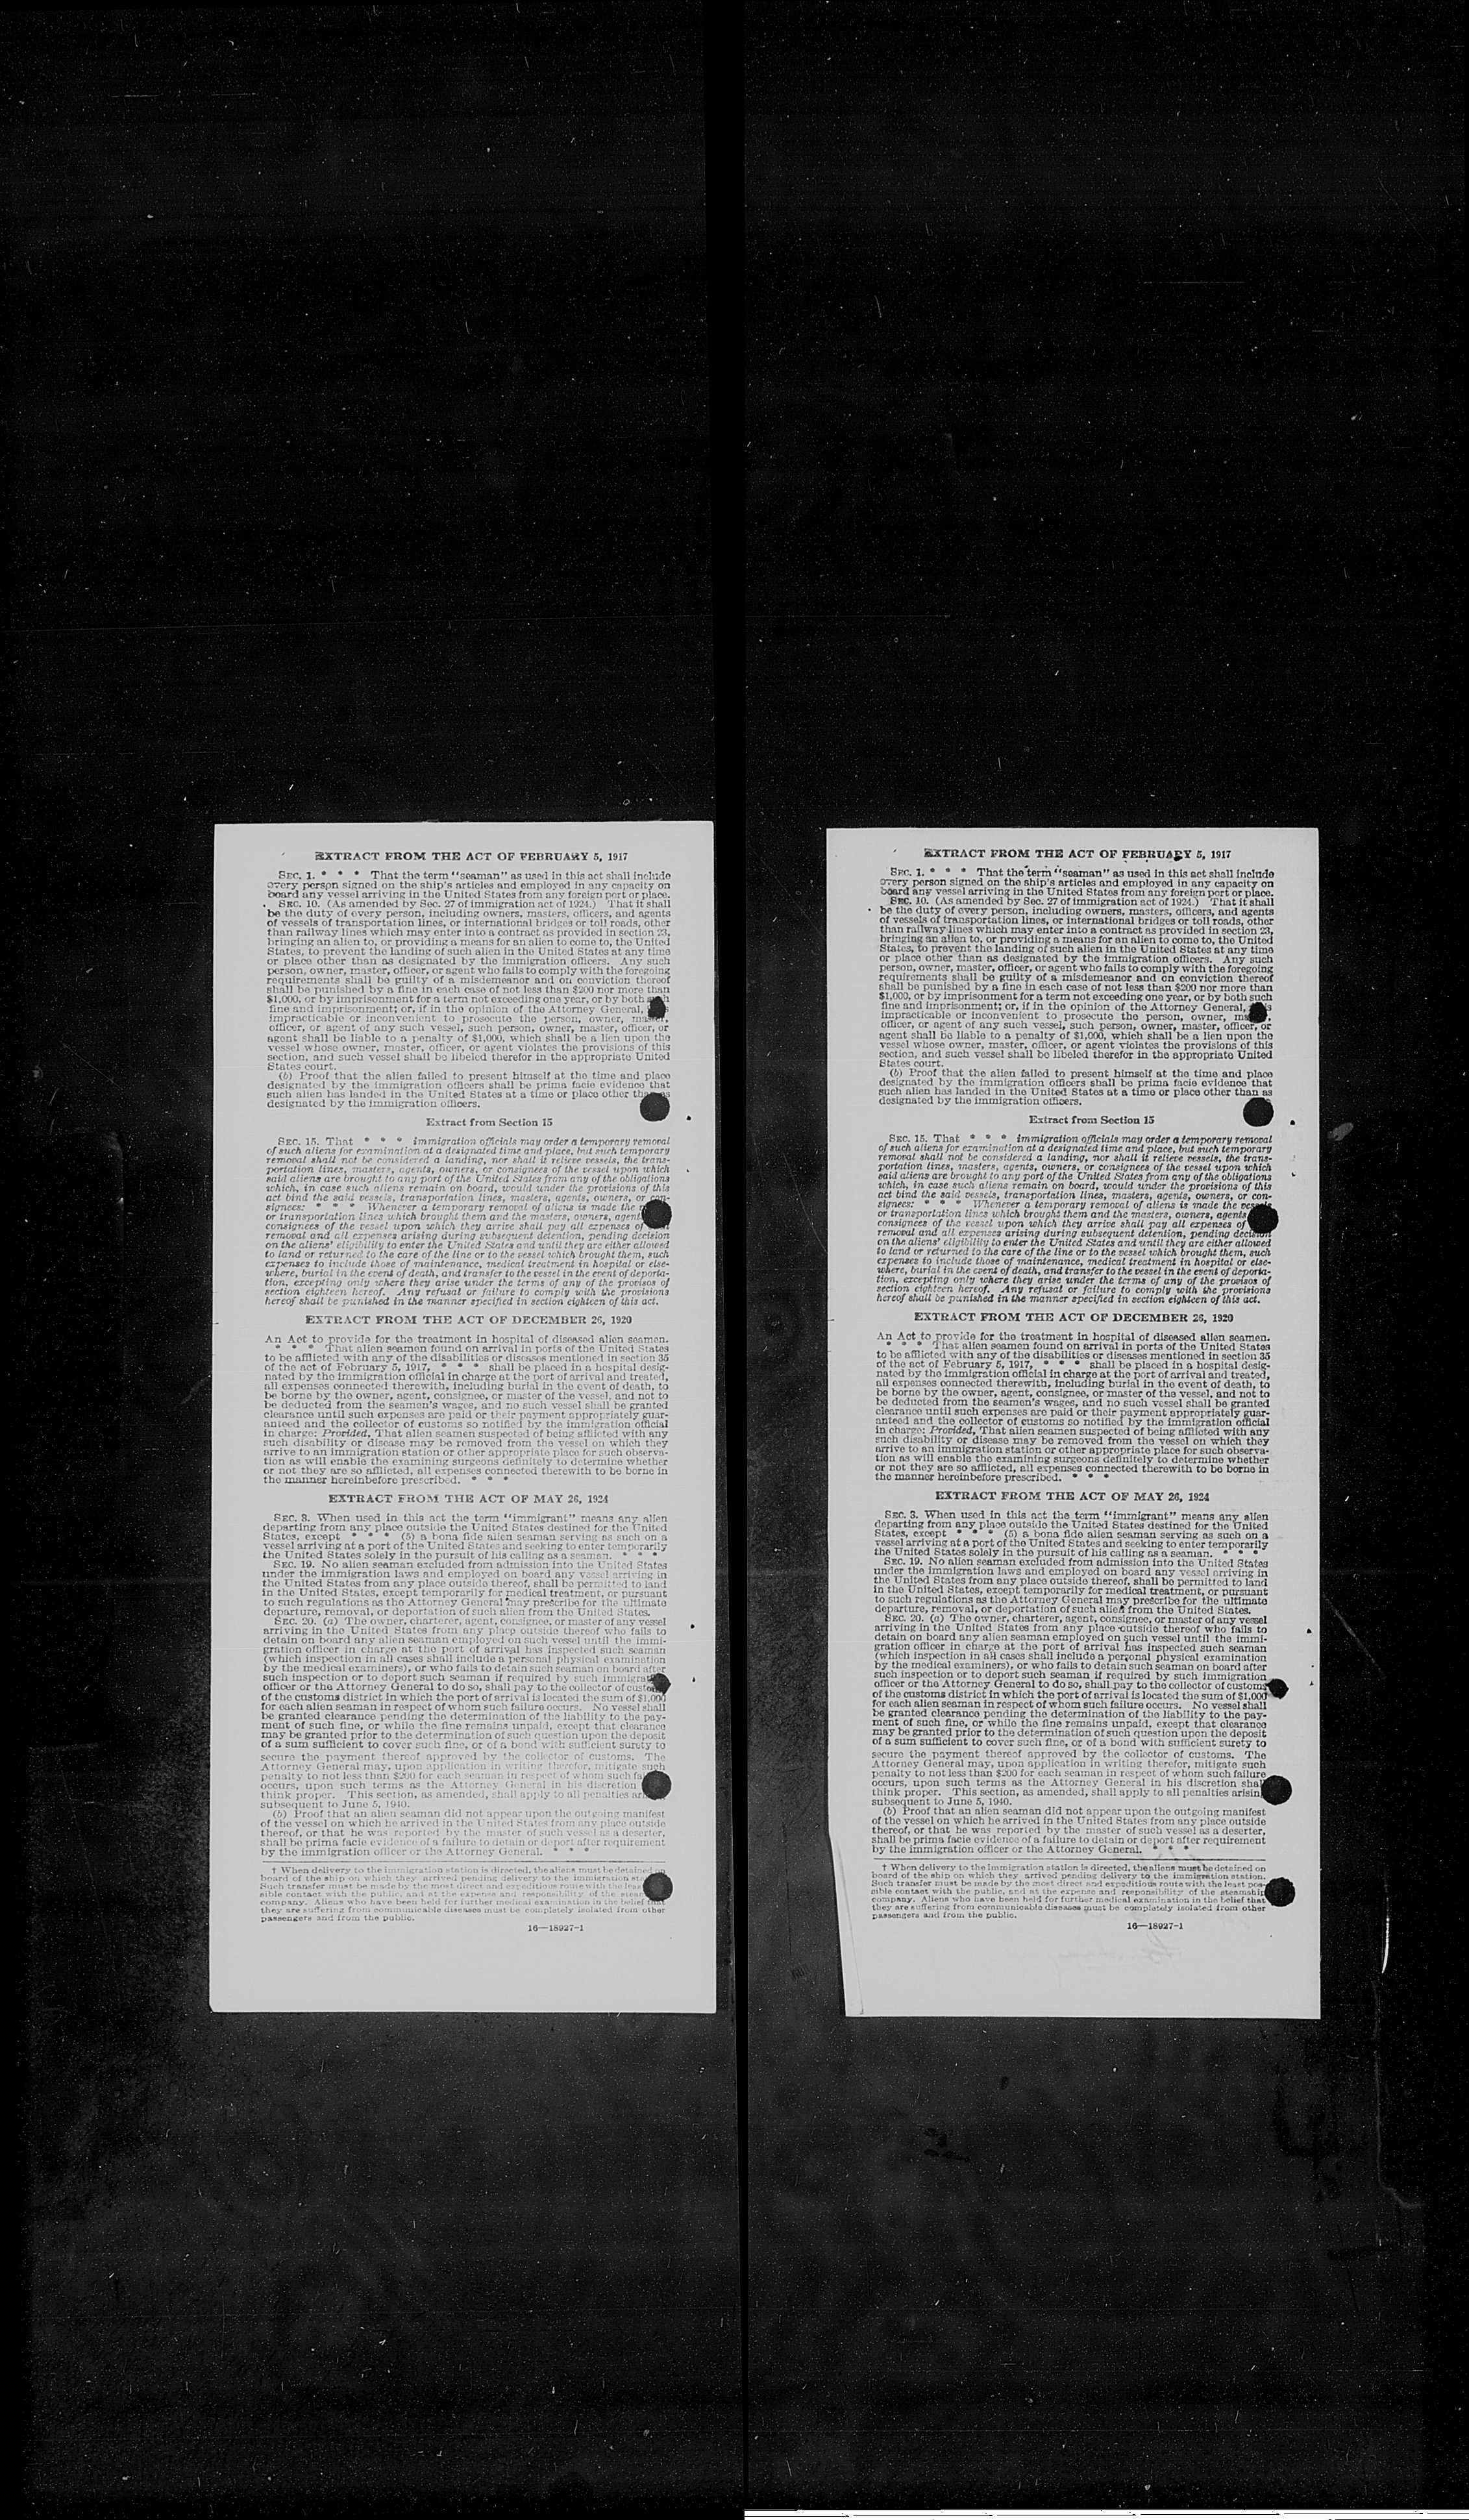 EXTRACT FROM THE ACT OF FEBRUARY 5, 1917
SEC. 1. * * * That the term "seaman" as used in this act shall include
every person signed on the ship's articles and employed in any capacity on
board any vessel arriving in the United States from any foreign port or place.
SEC. 10. (As amended by Sec. 27 of immigration act of 1924.) That it shall
be the duty of every person, including owners, masters, officers, and agents
of vessels of transportation lines, or international bridges or toll roads, other
than railway lines which may enter into a contract as provided in section 23,
bringing an alien to, or providing a means for an alien to come to, the United
States, to prevent the landing of such alien in the United States at any time
or place other than as designated by the immigration officers. Any such
person, owner, master, officer, or agent who fails to comply with the foregoing
requirements shall be guilty of a misdemeanor and on conviction thereof
shall be punished by a fine in each case of not less than $200 nor more than
$1,000, or by imprisonment for a term not exceeding one year, or by both
fine and imprisonment; or, if in the opinion of the Attorney General,
impracticable or inconvenient to prosecute the person, owner,
officer, or agent of any such vessel, such person, owner, master, officer, or
agent shall be liable to a penalty of $1,000, which shall be a lien upon the
vessel whose owner, master, officer, or agent violates the provisions of this
section, and such vessel shall be libeled therefor in the appropriate United
States court.
(b) Proof that the alien failed to present himself at the time and place
designated by the immigration officers shall be prima facie evidence that
such alien has landed in the United States at a time or place other
designated by the immigration officers.
Extract from Section 15
SEC. 15. That * * * immigration officials may order a temporary removal
of such aliens for examination at a designated time and place, but such temporary
removal shall not be considered a landing, nor shall it relieve vessels, the trans-
portation lines, masters, agents, owners, or consignees of the vessel upon which
said aliens are brought to any port of the United States from any of the obligations
which, in case such aliens remain on board, would under the provisions of this
act bind the said vessels, transportation lines, masters, agents, owners, or con-
signees: * * * Whenever a temporary removal of aliens is made the
or transportation lines which brought them and the masters, owners,
consignees of the vessel upon which they arrive shall pay all expenses of
removal and all expenses arising during subsequent detention, pending decision
on the aliens' eligibility to enter the United States and until they are either allowed
to land or returned to the care of the line or to the vessel which brought them, such
expenses to include those of maintenance, medical treatment in hospital or else-
where, burial in the event of death, and transfer to the vessel in the event of deporta-
tion, excepting only where they arise under the terms of any of the provisos of
section eighteen hereof. Any refusal or failure to comply with the provisions
hereof shall be punished in the manner specified in section eighteen of this act.
EXTRACT FROM THE ACT OF DECEMBER 26, 1920
An Act to provide for the treatment in hospital of diseased alien seamen.
* * * That alien seamen found on arrival in ports of the United States
to be afflicted with any of the disabilities or diseases mentioned in section 35
of the act of February 5, 1917, * * * shall be placed in a hospital desig-
nated by the immigration official in charge at the port of arrival and treated,
all expenses connected therewith, including burial in the event of death, to
be borne by the owner, agent, consignee, or master of the vessel, and not to
be deducted from the seamen's wages, and no such vessel shall be granted
clearance until such expenses are paid or their payment appropriately guar-
anteed and the collector of customs so notified by the immigration official
in charge: Provided, That alien seamen suspected of being afflicted with any
such disability or disease may be removed from the vessel on which they
arrive to an immigration station or other appropriate place for such observa-
tion as will enable the examining surgeons definitely to determine whether
or not they are so afflicted, all expenses connected therewith to be borne in
the manner hereinbefore prescribed. * * *
EXTRACT FROM THE ACT OF MAY 26, 1924
SEC. 3. When used in this act the term "immigrant" means any alien
departing from any place outside the United States destined for the United
States, except * * * (5) a bona fide alien seaman serving as such on a
vessel arriving at a port of the United States and seeking to enter temporarily
the United States solely in the pursuit of his calling as a seaman. * * *
SEC. 19. No alien seaman excluded from admission into the United States
under the immigration laws and employed on board any vessel arriving in
the United States from any place outside thereof, shall be permitted to land
in the United States, except temporarily for medical treatment, or pursuant
to such regulations as the Attorney General may prescribe for the ultimate
departure, removal, or deportation of such alien from the United States.
SEC. 20. (a) The owner, charterer, agent, consignee, or master of any vessel
arriving in the United States from any place outside thereof who fails to
detain on board any alien seaman employed on such vessel until the immi-
gration officer in charge at the port of arrival has inspected such seaman
(which inspection in all cases shall include a personal physical examination
by the medical examiners), or who fails to detain such seaman on board after
such inspection or to deport such seaman if required by such
officer or the Attorney General to do so, shall pay to the collector of
of the customs district in which the port of arrival is located the sum of $1,000
for each alien seaman in respect of whom such failure occurs. No vessel shall
be granted clearance pending the determination of the liability to the pay-
ment of such fine, or while the fine remains unpaid, except that clearance
may be granted prior to the determination of such question upon the deposit
of a sum sufficient to cover such fine, or of a bond with sufficient surety to
secure the payment thereof approved by the collector of customs. The
Attorney General may, upon application in writing therefor, mitigate such
penalty to not less than $200 for each seaman in respect of whom such
occurs, upon such terms as the Attorney General in his discretion
think proper. This section, as amended, shall apply to all penalties
subsequent to June 5, 1940.
(b) Proof that an alien seaman did not appear upon the outgoing manifest
of the vessel on which he arrived in the United States from any place outside
thereof, or that he was reported by the master of such vessel as a deserter,
shall be prima facie evidence of a failure to detain or deport after requirement
by the immigration officer or the Attorney General. * * *
† When delivery to the immigration station is directed, the aliens must be detained on
board of the ship on which they arrived pending delivery to the immigration
Such transfer must be made by the most direct and expeditious route with the
sible contact with the public, and at the expense and responsibility of the
company. Aliens who have been held for further medical examination in the belief
they are suffering from communicable diseases must be completely isolated from other
passengers and from the public.
16—18927-1
EXTRACT FROM THE ACT OF FEBRUARY 5, 1917
SEC. 1. * * * That the term "seaman" as used in this act shall include
every person signed on the ship's articles and employed in any capacity on
board any vessel arriving in the United States from any foreign port or place.
SEC. 10. (As amended by Sec. 27 of immigration act of 1924.) That it shall
be the duty of every person, including owners, masters, officers, and agents
of vessels of transportation lines, or international bridges or toll roads, other
than railway lines which may enter into a contract as provided in section 23,
bringing an alien to, or providing a means for an alien to come to, the United
States, to prevent the landing of such alien in the United States at any time
or place other than as designated by the immigration officers. Any such
person, owner, master, officer, or agent who fails to comply with the foregoing
requirements shall be guilty of a misdemeanor and on conviction thereof
shall be punished by a fine in each case of not less than $200 nor more than
$1,000, or by imprisonment for a term not exceeding one year, or by both such
fine and imprisonment; or, if in the opinion of the Attorney General,
impracticable or inconvenient to prosecute the person, owner,
officer, or agent of any such vessel, such person, owner, master, officer, or
agent shall be liable to a penalty of $1,000, which shall be a lien upon the
vessel whose owner, master, officer, or agent violates the provisions of this
section, and such vessel shall be libeled therefor in the appropriate United
States court.
(b) Proof that the alien failed to present himself at the time and place
designated by the immigration officers shall be prima facie evidence that
such alien has landed in the United States at a time or place other than as
designated by the immigration officers.
Extract from Section 15
SEC. 15. That * * * immigration officials may order a temporary removal
of such aliens for examination at a designated time and place, but such temporary
removal shall not be considered a landing, nor shall it relieve vessels, the trans-
portation lines, masters, agents, owners, or consignees of the vessel upon which
said aliens are brought to any port of the United States from any of the obligations
which, in case such aliens remain on board, would under the provisions of this
act bind the said vessels, transportation lines, masters, agents, owners, or con-
signees: * * * Whenever a temporary removal of aliens is made the vessels
or transportation lines which brought them and the masters, owners, agents
consignees of the vessel upon which they arrive shall pay all expenses of
removal and all expenses arising during subsequent detention, pending decision
on the aliens' eligibility to enter the United States and until they are either allowed
to land or returned to the care of the line or to the vessel which brought them, such
expenses to include those of maintenance, medical treatment in hospital or else-
where, burial in the event of death, and transfer to the vessel in the event of deporta-
tion, excepting only where they arise under the terms of any of the provisos of
section eighteen hereof. Any refusal or failure to comply with the provisions
hereof shall be punished in the manner specified in section eighteen of this act.
EXTRACT FROM THE ACT OF DECEMBER 26, 1920
An Act to provide for the treatment in hospital of diseased alien seamen.
* * * That alien seamen found on arrival in ports of the United States
to be afflicted with any of the disabilities or diseases mentioned in section 35
of the act of February 5, 1917, * * * shall be placed in a hospital desig-
nated by the immigration official in charge at the port of arrival and treated,
all expenses connected therewith, including burial in the event of death, to
be borne by the owner, agent, consignee, or master of the vessel, and not to
be deducted from the seamen's wages, and no such vessel shall be granted
clearance until such expenses are paid or their payment appropriately guar-
anteed and the collector of customs so notified by the immigration official
in charge: Provided, That alien seamen suspected of being afflicted with any
such disability or disease may be removed from the vessel on which they
arrive to an immigration station or other appropriate place for such observa-
tion as will enable the examining surgeons definitely to determine whether
or not they are so afflicted, all expenses connected therewith to be borne in
the manner hereinbefore prescribed. * * *
EXTRACT FROM THE ACT OF MAY 26, 1924
SEC. 3. When used in this act the term "immigrant" means any alien
departing from any place outside the United States destined for the United
States, except * * * (5) a bona fide alien seaman serving as such on a
vessel arriving at a port of the United States and seeking to enter temporarily
the United States solely in the pursuit of his calling as a seaman. * * *
SEC. 19. No alien seaman excluded from admission into the United States
under the immigration laws and employed on board any vessel arriving in
the United States from any place outside thereof, shall be permitted to land
in the United States, except temporarily for medical treatment, or pursuant
to such regulations as the Attorney General may prescribe for the ultimate
departure, removal, or deportation of such alien from the United States.
SEC. 20. (a) The owner, charterer, agent, consignee, or master of any vessel
arriving in the United States from any place outside thereof who fails to
detain on board any alien seaman employed on such vessel until the immi-
gration officer in charge at the port of arrival has inspected such seaman
(which inspection in all cases shall include a personal physical examination
by the medical examiners), or who fails to detain such seaman on board after
such inspection or to deport such seaman if required by such immigration
officer or the Attorney General to do so, shall pay to the collector of customs
of the customs district in which the port of arrival is located the sum of $1,000
for each alien seaman in respect of whom such failure occurs. No vessel shall
be granted clearance pending the determination of the liability to the pay-
ment of such fine, or while the fine remains unpaid, except that clearance
may be granted prior to the determination of such question upon the deposit
of a sum sufficient to cover such fine, or of a bond with sufficient surety to
secure the payment thereof approved by the collector of customs. The
Attorney General may, upon application in writing therefor, mitigate such
penalty to not less than $200 for each seaman in respect of whom such failure
occurs, upon such terms as the Attorney General in his discretion
think proper. This section, as amended, shall apply to all penalties
subsequent to June 5, 1940.
(b) Proof that an alien seaman did not appear upon the outgoing manifest
of the vessel on which he arrived in the United States from any place outside
thereof, or that he was reported by the master of such vessel as a deserter,
shall be prima facie evidence of a failure to detain or deport after requirement
by the immigration officer or the Attorney General. * * *
† When delivery to the immigration station is directed, the aliens must be detained on
board of the ship on which they arrived pending delivery to the immigration station.
Such transfer must be made by the most direct and expeditious route with the least pos-
sible contact with the public, and at the expense and responsibility of the steamship
company. Aliens who have been held for further medical examination in the belief that
they are suffering from communicable diseases must be completely isolated from other
passengers and from the public.
16—18927-1